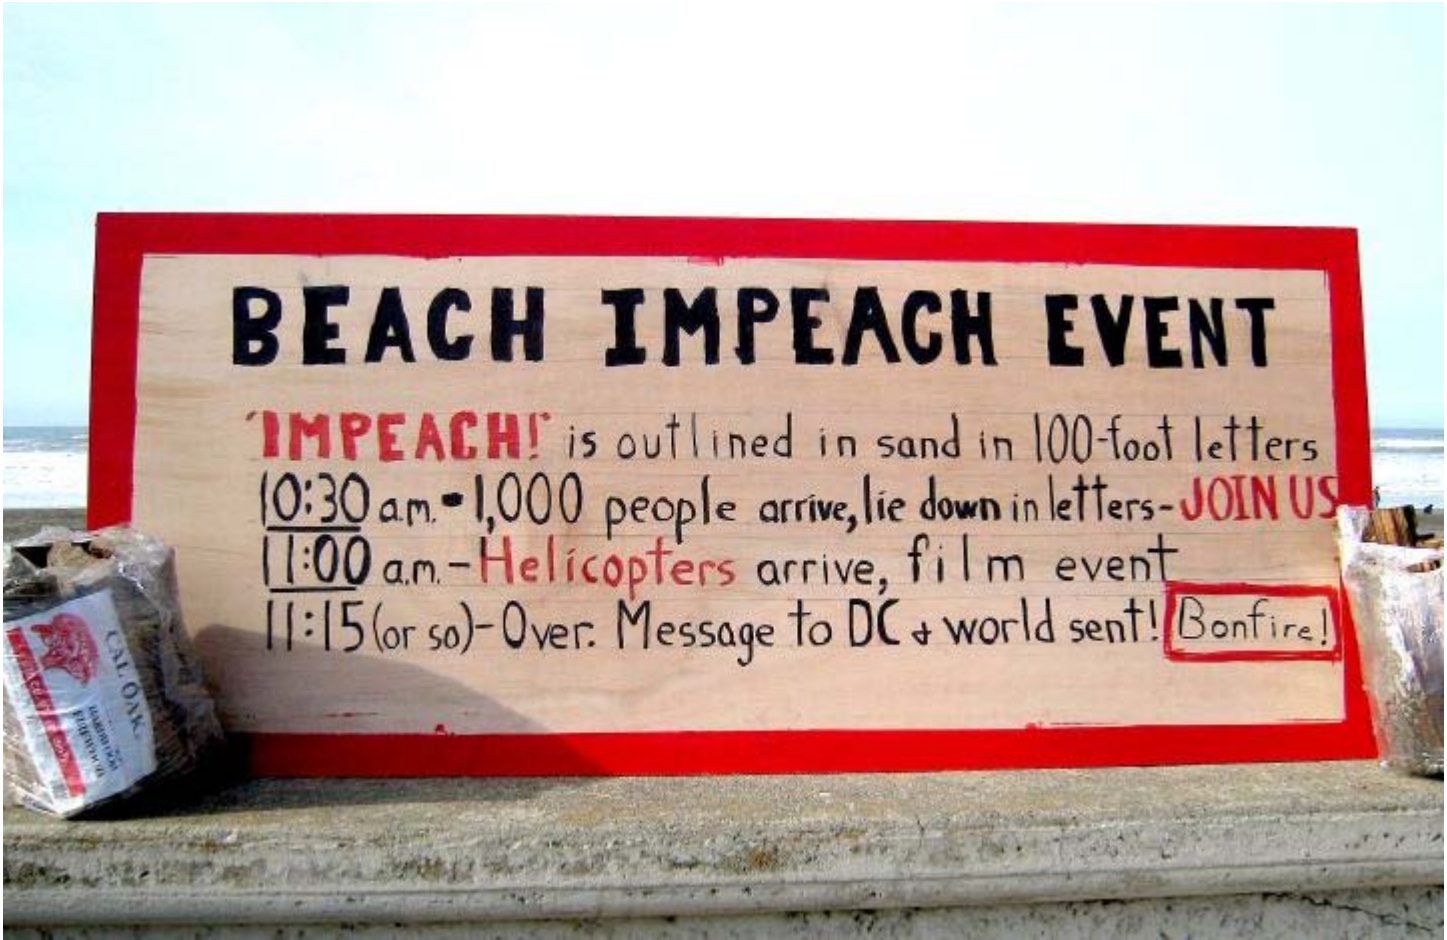 BEACH IMPEACH EVENT
"IMPEACH!" is outlined in sand in 100-foot letters
10:30 a.m. - 1,000 people arrive, lie down in letters - JOIN US
11:00 a.m. - Helicopters arrive, film event
11:15 (or so) - Over. Message to DC & world sent! Bonfire!
CAL OAK
FIREWOOD